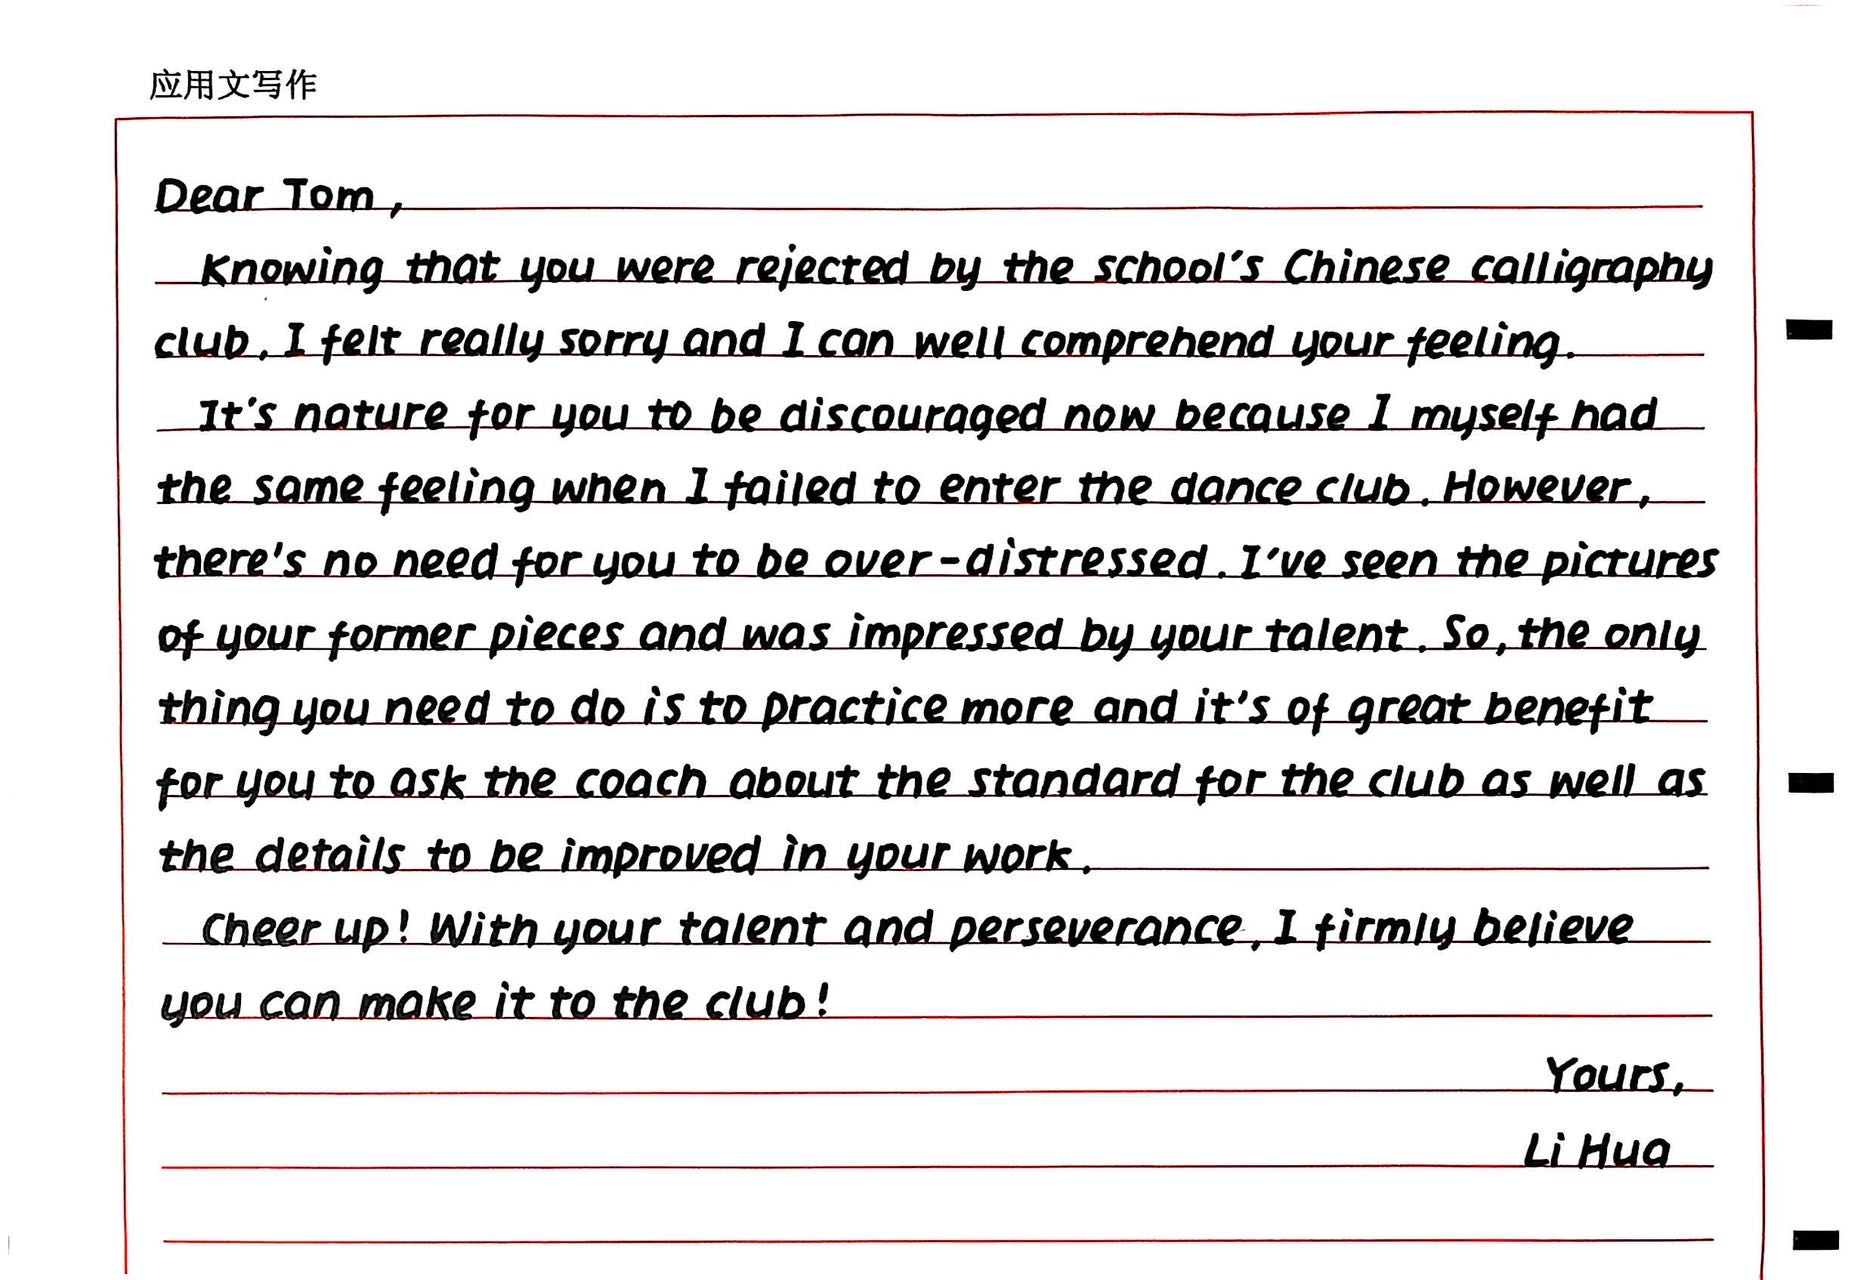 应用文写作
Dear Tom,
Knowing that you were rejected by the school's Chinese calligraphy
club, I felt really sorry and I can well comprehend your feeling.
It's nature for you to be discouraged now because I myself had
the same feeling when I failed to enter the dance club. However,
there's no need for you to be over-distressed. I've seen the pictures
of your former pieces and was impressed by your talent. So, the only
thing you need to do is to practice more and it's of great benefit
for you to ask the coach about the standard for the club as well as
the details to be improved in your work.
Cheer up! With your talent and perseverance, I firmly believe
you can make it to the club!
Yours,
Li Hua